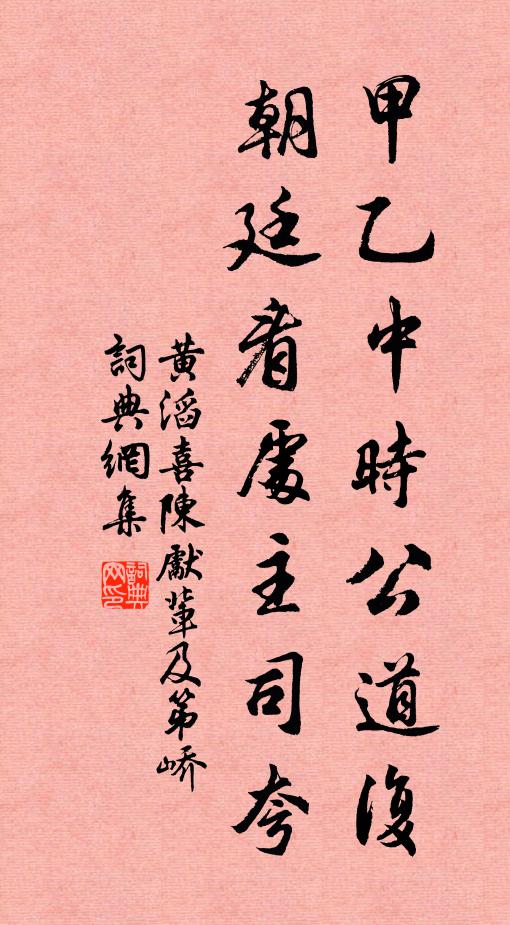 甲乙中時公道復
朝廷看處主司夸
黃滔喜陳獻輩及第嶠
詞典網集
詞典網印